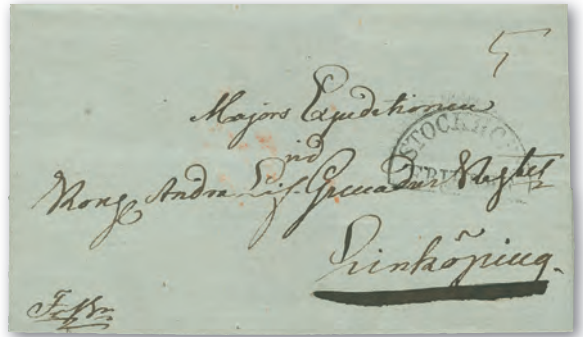 Majors Expeditionen
vid
Kong. Andra Lif. Grenadier Regtet
Linköping.
STOCKHO